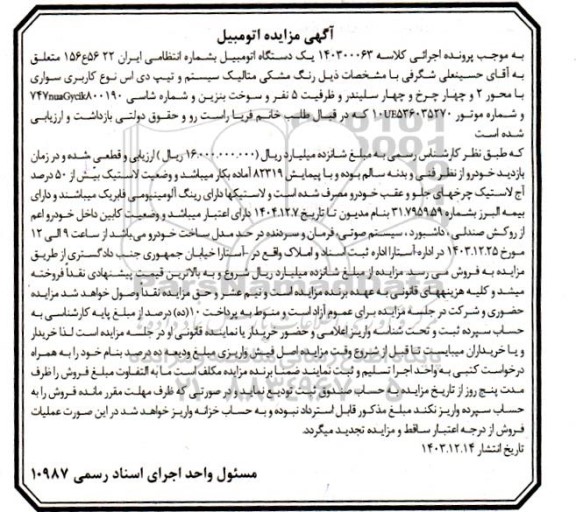 آگهی مزایده اتومبیل
به موجب پرونده اجرائی کلاسه ۱۴۰۳۰۰۰۶۳ یک دستگاه اتومبیل بشماره انتظامی ایران ۲۲ ۱۵۶ع۵۶ متعلق
به آقای حسینعلی شگرفی با مشخصات ذیل رنگ مشکی متالیک سیستم و تیپ دی اس نوع کاربری سواری
با محور ۲ و چهار چرخ و چهار سلیندر و ظرفیت ۵ نفر و سوخت بنزین و شماره شاسی
و شماره موتور ۱۰UE۵۳۶۰۳۵۲۷۰ که در قبال طلب خانم فریبا راست رو و حقوق دولتی بازداشت و ارزیابی
شده است
که طبق نظر کارشناس رسمی به مبلغ شانزده میلیارد ریال (۱۶.۰۰۰.۰۰۰.۰۰۰ ریال) ارزیابی و قطعی شده و در زمان
بازدید خودرو از نظر فنی و بدنه سالم بوده و با پیمایش ۸۲۳۱۹ آماده بکار میباشد و وضعیت لاستیک بیش از ۵۰ درصد
آج لاستیک چرخهای جلو و عقب خودرو مصرف شده است و لاستیکها دارای رینگ آلومینیومی فابریک میباشند و دارای
بیمه البرز بشماره ۳۱.۷۹۵۹۵۹ بنام مدیون تا تاریخ ۱۴۰۴.۱۲.۷ دارای اعتبار میباشد و وضعیت کابین داخل خودرو اعم
از روکش صندلی ، داشبورد ، سیستم صوتی، فرمان و سردنده در حد مدل ساخت خودرو می‌باشد از ساعت ۹ الی ۱۲
مورخ ۱۴۰۳.۱۲.۲۵ در اداره-آستارا اداره ثبت اسناد و املاک واقع در -آستارا خیابان جمهوری جنب دادگستری از طریق
مزایده به فروش می رسد مزایده از مبلغ شانزده میلیارد ریال شروع و به بالاترین قیمت پیشنهادی نقداً فروخته
میشد و کلیه هزینههای قانونی به عهده برنده مزایده است و نیم عشر و حق مزایده نقداً وصول خواهد شد مزایده
حضوری و شرکت در جلسه مزایده برای عموم آزاد است و منوط به پرداخت ۱۰(ده) درصد از مبلغ پایه کارشناسی به
حساب سپرده ثبت و تحت شناسه واریز اعلامی و حضور خریدار یا نماینده قانونی او در جلسه مزایده است لذا خریدار
و یا خریداران میبایست تا قبل از شروع وقت مزایده اصل فیش واریزی مبلغ ودیعه ده درصد بنام خود را به همراه
درخواست کتبی به واحد اجرا تسلیم و ثبت نمایند ضمنا برنده مزایده مکلف است مابه التفاوت مبلغ فروش را ظرف
مدت پنج روز از تاریخ مزایده به حساب صندوق ثبت تودیع نماید و در صورتی که ظرف مهلت مقرر مانده فروش را به
حساب سپرده واریز نکند مبلغ مذکور قابل استرداد نبوده و به حساب خزانه واریز خواهد شد در این صورت عملیات
فروش از درجه اعتبار ساقط و مزایده تجدید میگردد.
تاریخ انتشار ۱۴۰۳.۱۲.۱۴
مسئول واحد اجرای اسناد رسمی ۱۰۹۸۷
ParsNamadData
۰۲۱-۸۸۳۴۹۶۷۰-۵